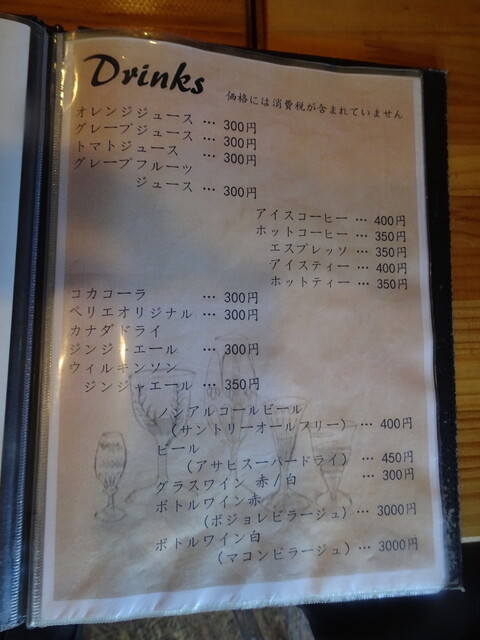 Drinks
価格には消費税が含まれていません
オレンジジュース … 300円
グレープジュース … 300円
トマトジュース … 300円
グレープフルーツ
ジュース … 300円
アイスコーヒー … 400円
ホットコーヒー … 350円
エスプレッソ … 350円
アイスティー … 400円
ホットティー … 350円
コカコーラ … 300円
ペリエオリジナル … 300円
カナダドライ
ジンジャエール … 300円
ウィルキンソン
ジンジャエール … 350円
ノンアルコールビール
(サントリーオールフリー) … 400円
ビール
(アサヒスーパードライ) … 450円
グラスワイン 赤/白 … 300円
ボトルワイン赤
(ボジョレビラージュ) … 3000円
ボトルワイン白
(マコンビラージュ) … 3000円